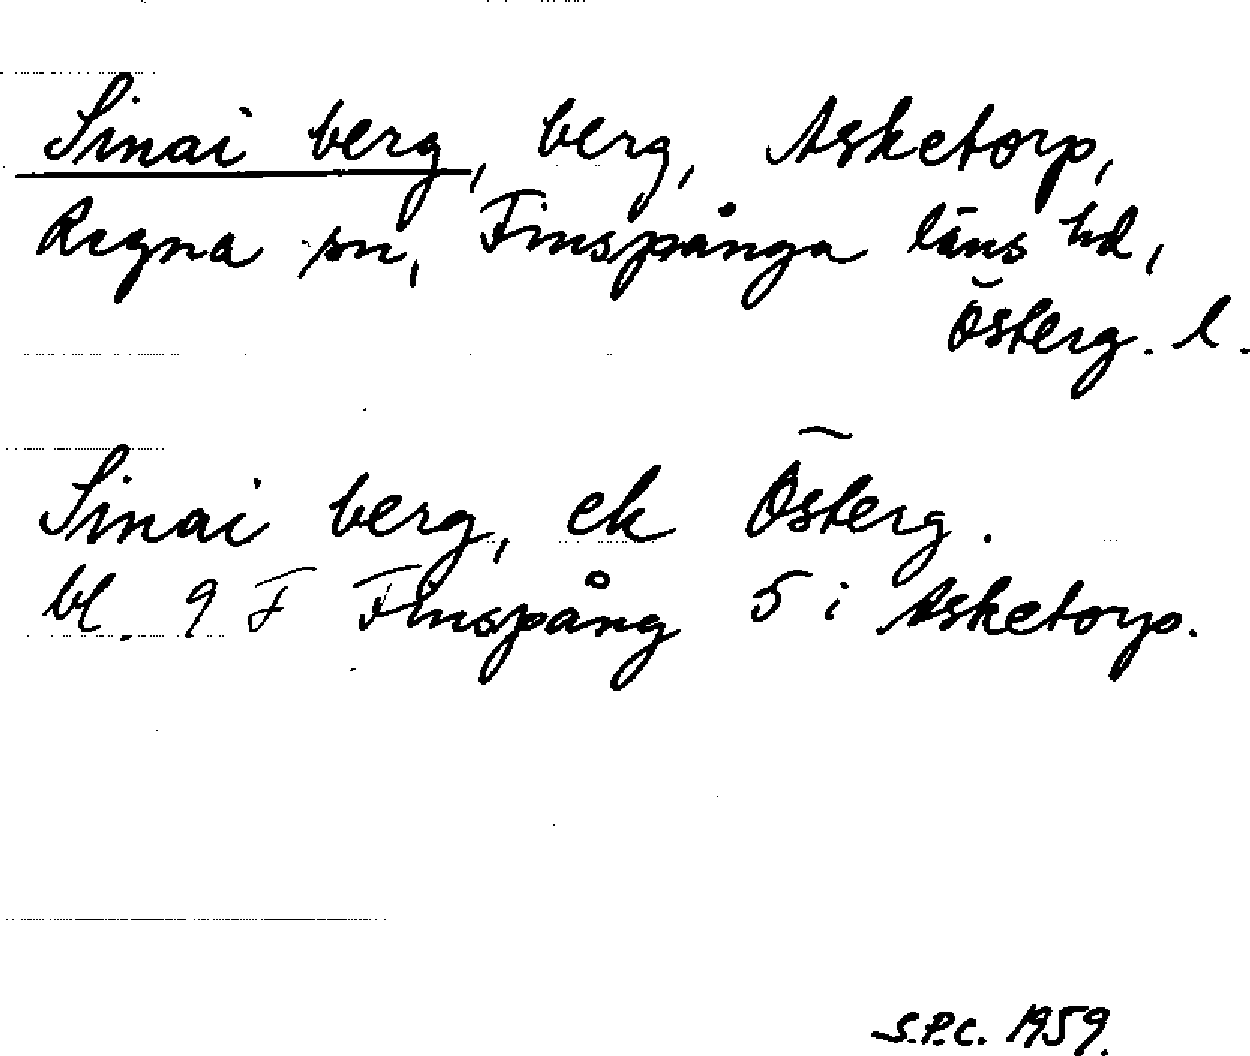 Sinai berg, berg, Asketorp,
Regna sn, Finspånga läns hd,
Österg. l.
Sinai berg, ek Österg.
bl. 9 F Finspång 5 i Asketorp.
S.P.C. 1959.